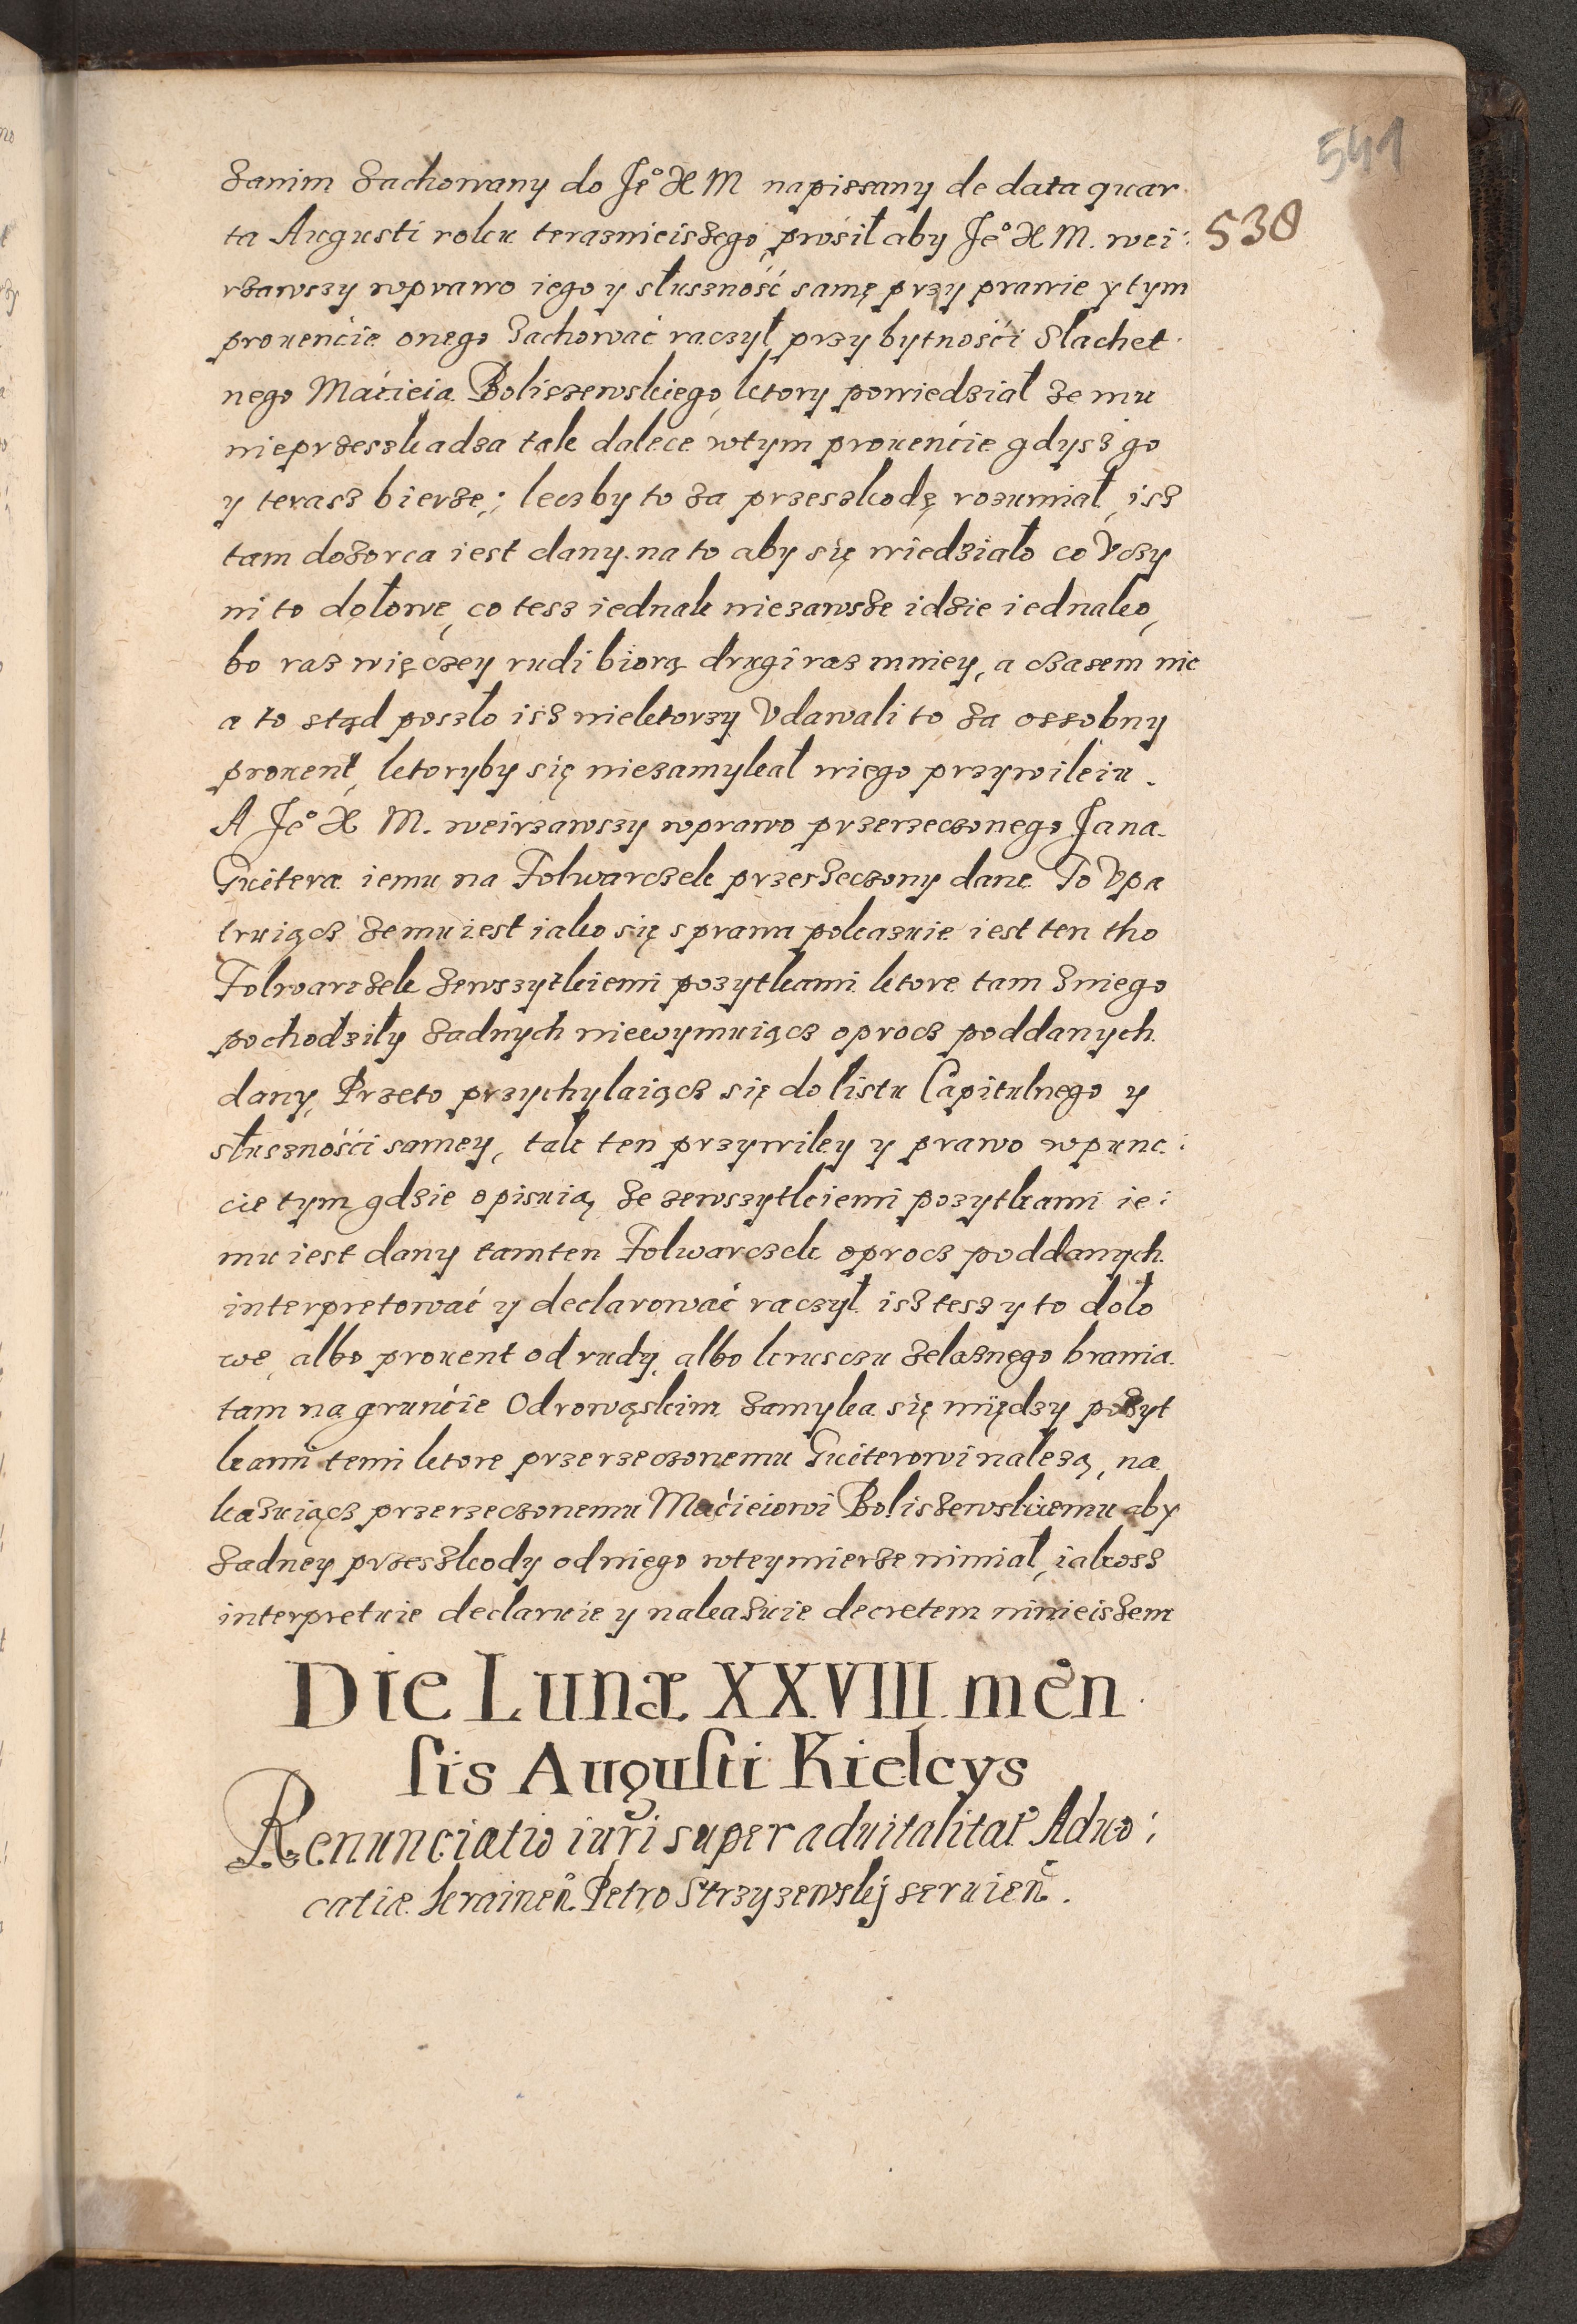 541
538
zanim zachowany do Je° X M napissany de data quar
ta Augusti roku teraznieiszego, prosił aby Je° X M. wei:
rzawszy wprawo iego y słuszność samę przy prawie y tym
prouencie onego zachować raczył, przy bytnośći Slachet
nego Maćieia Boliszewskiego, ktory powiedział ze mu
nieprzeszkadza tak dalece wtym prouenćie gdysz go
y terasz bierze; lecz by to za przeszkodę rozumiał, isz
tam dozorca iest dany. na to aby się wiedziało co Vczy
ni to dołowe, co tesz iednak niezawsze idzie iednako,
bo raz więczey rudi biorą drugi raz mniey, a czasem nic
a to stąd poszło isz niektorzy Vdawali to za ossobny
prouent, ktoryby się niezamykał wiego przywileiu.
A Je° X M. weirzawszy wprawo przerzeczonego Jana
Guitera iemu na Folwarczek przerzeczony dane To Vpa
truiącz ze mu iest iako się sprawa pokazuie iest ten tho
Folwarczek zewszytkiemi pozytkami ktore tam zniego
pochodziły zadnych niewymuiącz oprocz poddanych
dany, Przeto przychylaiącz się do listu Capitulnego y
słusznośći samey, tak ten przywiley y prawo wpunc:
cie tym gdzie opisuią, ze zewszytkiemi pozytkami ie:
mu iest dany tamten Folwarczek oprocz poddanych
interpretować y declarować raczył isz tesz y to doło
we, albo prouent od rudy, albo kruszczu zelaznego brania
tam na grunćie Odrowąskim zamyka się między pozyt
kami temi ktore przerzeczonemu Guiterowi nalezą, na
kazuiącz przerzeczonemu Maćieiowi Boliszewskiemu aby
zadney przeszkody od niego wtey mierze nimiał, iakosz
interpretuie declaruie y nakazuie decretem ninieiszem
Die Lunæ XXVIII men
sis Augusti Kielcys
Renunciatio iuri super aduitalitat Aduo:
catiæ krainen Petro Strzyzewskj seruien.